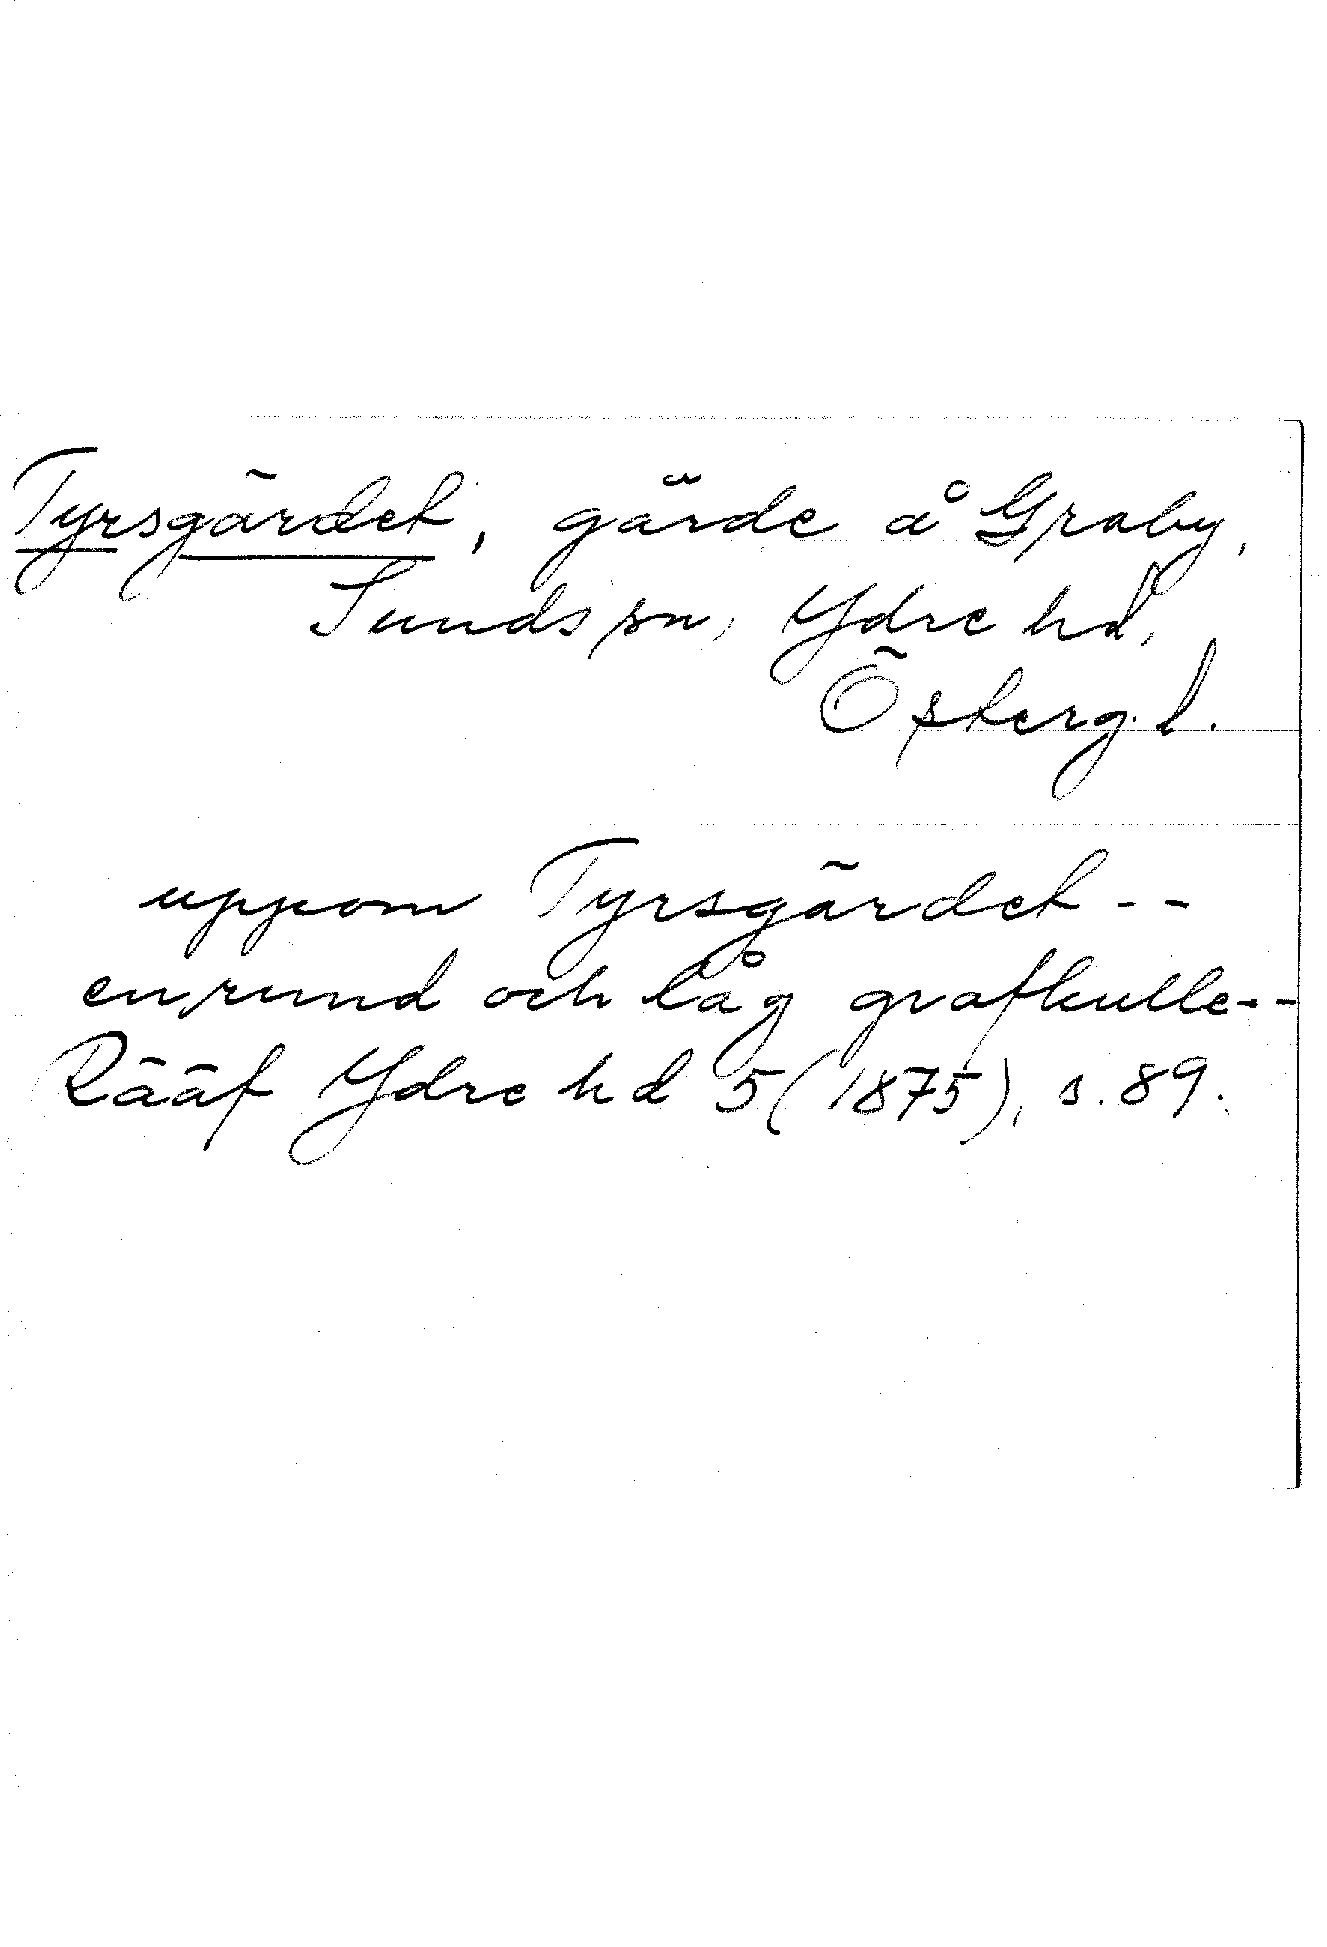 Tyrsgärdet, gärde å Graby,
Sunds sn, Ydre hd,
Österg. l.
uppom Tyrsgärdet --
en rund och låg grafkulle--
Rääf Ydre hd 5 (1875), s. 89.